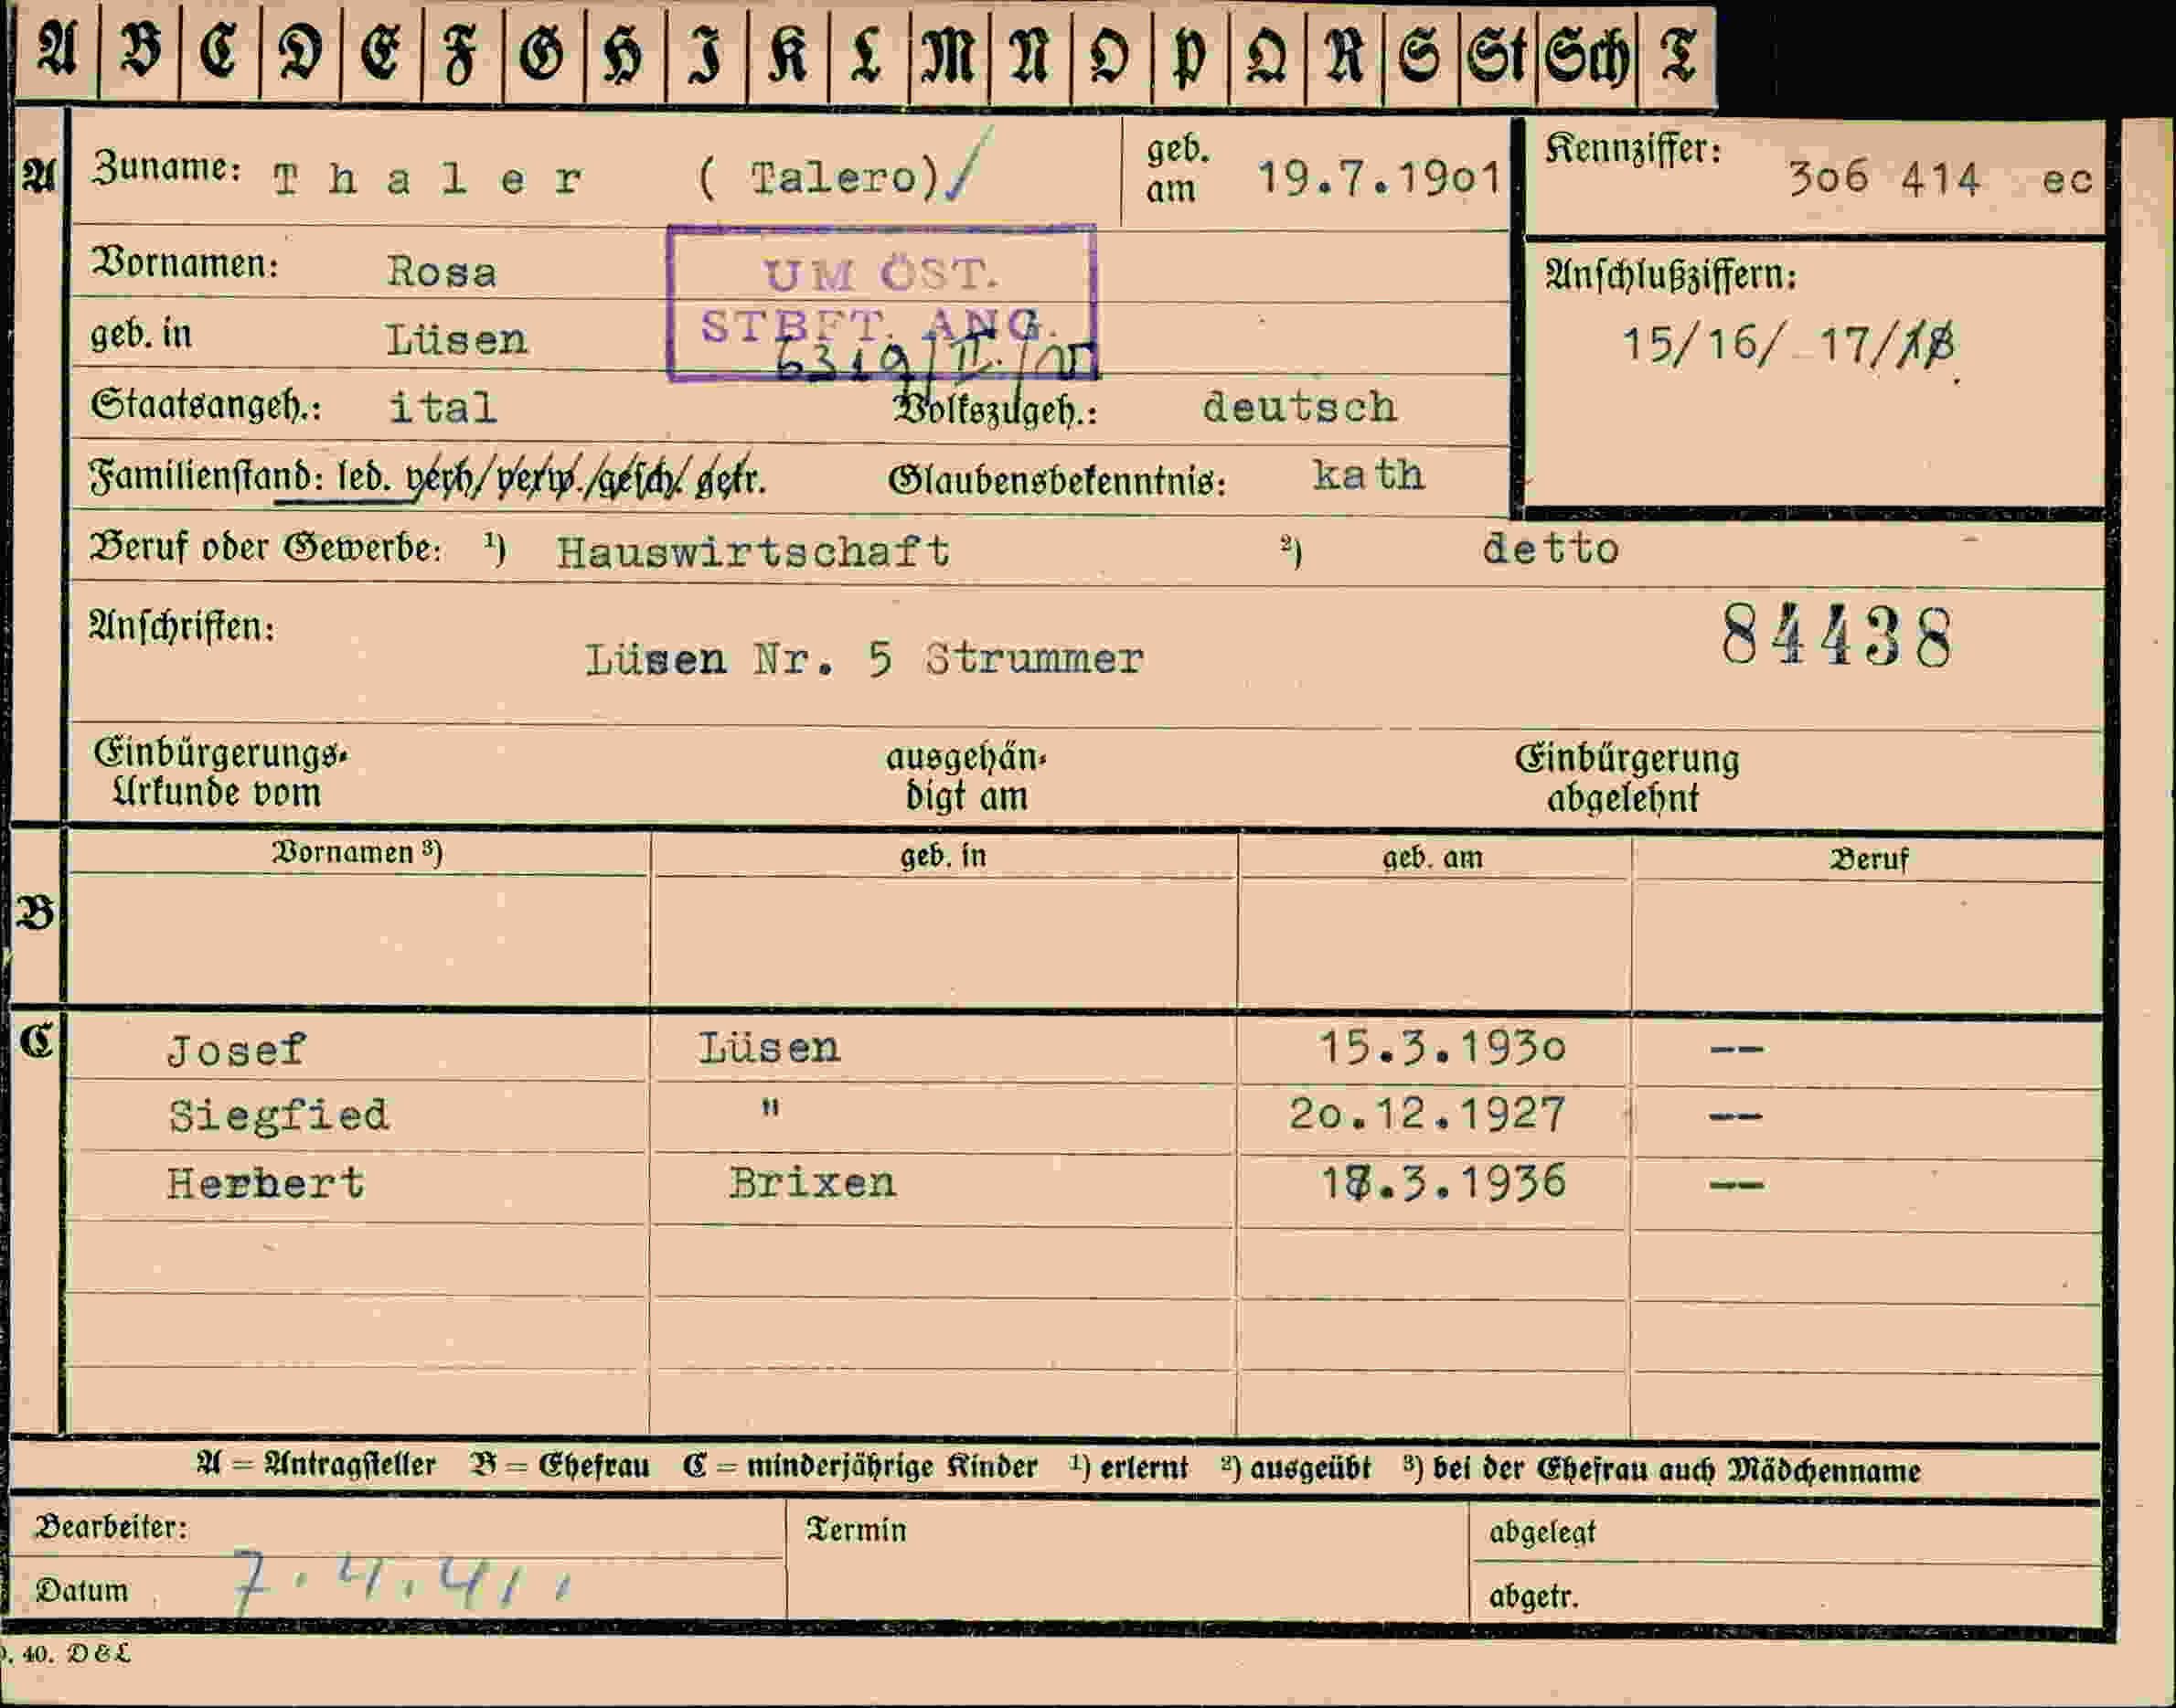 A B C D E F G H I K L M N O P Q R S St Sch T
A Zuname: Thaler (Talero)/ geb. am 19.7.1901 Kennziffer: 306 414 ec
Vornamen: Rosa UM ÖST.
geb. in Lüsen STBFT. ANG. Anschlußziffern:
15/16/ 17/18
Staatsangeh.: ital Volkszugeh.: deutsch
Familienstand: led. verh/verw./gesch/getr. Glaubensbekenntnis: kath
Beruf oder Gewerbe: ¹) Hauswirtschaft ²) detto
Anschriften: Lüsen Nr. 5 Strummer 84438
Einbürgerungs- ausgehän- Einbürgerung
Urkunde vom digt am abgelehnt
Vornamen ³) geb. in geb. am Beruf
B
C Josef Lüsen 15.3.1930 --
Siegfied " 20.12.1927 --
Herbert Brixen .3.1936 --
A = Antragsteller B = Ehefrau C = minderjährige Kinder ¹) erlernt ²) ausgeübt ³) bei der Ehefrau auch Mädchenname
Bearbeiter: Termin abgelegt
Datum 7.4.41. abgetr.
40. D&L